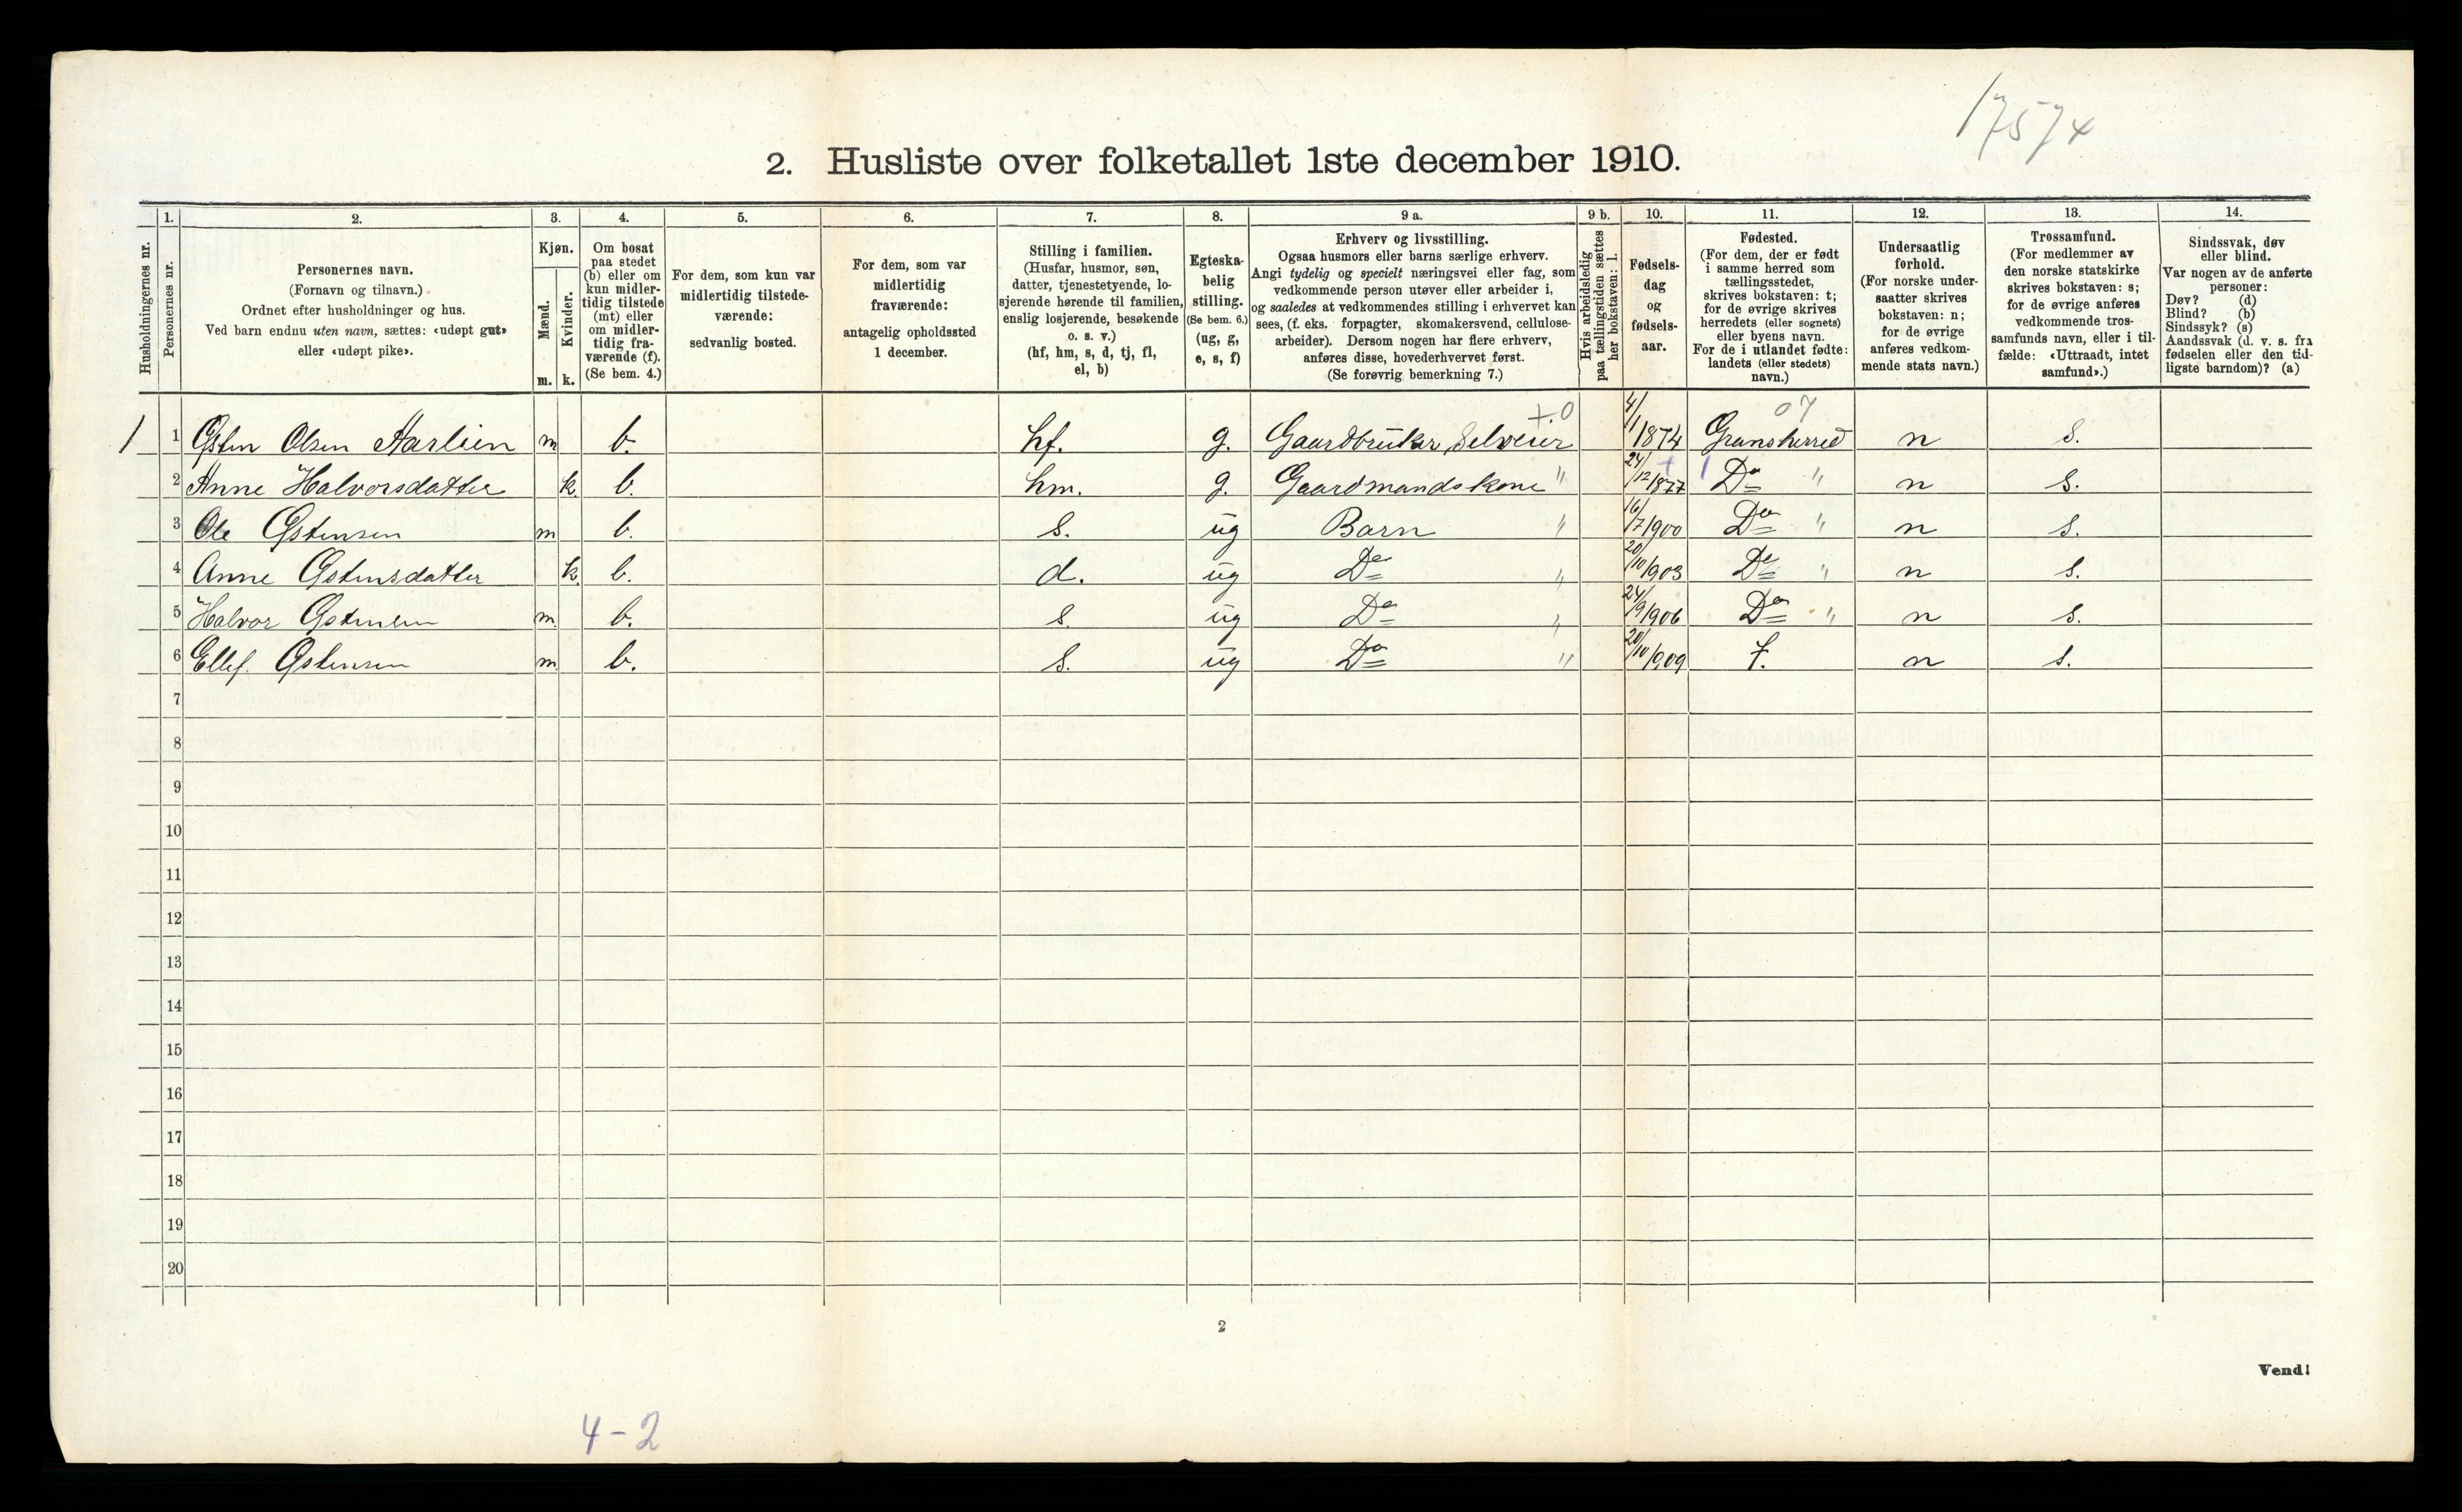 17574
2. Husliste over folketallet 1ste december 1910.
Husholdningernes nr.
1.
Personernes nr.
2.
Personernes navn.
(Fornavn og tilnavn.)
Ordnet efter husholdninger og hus.
Ved barn endnu uten navn, sættes: «udøpt gut»
eller «udøpt pike».
3.
Kjøn.
Mænd.
Kvinder.
m. k.
4.
Om bosat
paa stedet
(b) eller om
kun midler-
tidig tilstede
(mt) eller
om midler-
tidig fra-
værende (f).
(Se bem. 4.)
5.
For dem, som kun var
midlertidig tilstede-
værende:
sedvanlig bosted.
6.
For dem, som var
midlertidig
fraværende:
antagelig opholdssted
1 december.
7.
Stilling i familien.
(Husfar, husmor, søn,
datter, tjenestetyende, lo-
sjerende hørende til familien,
enslig losjerende, besøkende
o. s. v.)
(hf, hm, s, d, tj, fl,
el, b)
8.
Egteska-
belig
stilling.
(Se bem. 6.)
(ug, g,
e, s, f)
9 a.
Erhverv og livsstilling.
Ogsaa husmors eller barns særlige erhverv.
Angi tydelig og specielt næringsvei eller fag, som
vedkommende person utøver eller arbeider i,
og saaledes at vedkommendes stilling i erhvervet kan
sees, (f. eks. forpagter, skomakersvend, cellulose-
arbeider). Dersom nogen har flere erhverv,
anføres disse, hovederhvervet først.
(Se forøvrig bemerkning 7.)
9 b.
Hvis arbeidsledig
paa tællingstiden sættes
her bokstaven: l.
10.
Fødsels-
dag
og
fødsels-
aar.
11.
Fødested.
(For dem, der er født
i samme herred som
tællingsstedet,
skrives bokstaven: t;
for de øvrige skrives
herredets (eller sognets)
eller byens navn.
For de i utlandet fødte:
landets (eller stedets)
navn.)
12.
Undersaatlig
forhold.
(For norske under-
saatter skrives
bokstaven: n;
for de øvrige
anføres vedkom-
mende stats navn.)
13.
Trossamfund.
(For medlemmer av
den norske statskirke
skrives bokstaven: s;
for de øvrige anføres
vedkommende tros-
samfunds navn, eller i til-
fælde: «Uttraadt, intet
samfund».)
14.
Sindssvak, døv
eller blind.
Var nogen av de anførte
personer:
Døv? (d)
Blind? (b)
Sindssyk? (s)
Aandssvak (d. v. s. fra
fødselen eller den tid-
ligste barndom)? (a)
+.0 07
1 1 Østen Olsen Aarlien m b. hf. g. Gaardbruker Selveier 4/1 1874 Gransherred n s.
2 Anne Halvorsdatter k. b. hm. g. Gaardmandskone " 24/12/1877 Do " n s.
3 Ole Østensen m b. s. ug Barn " 16/7/1900 Do " n s.
4 Anne Østensdatter k. b. d. ug Do " 20/10/903 Do " n s.
5 Halvor Østensen m. b. s. ug Do " 24/9/906 Do " n s.
6 Ellef Østensen m. b. s. ug Do " 20/10/909 t. n s.
7
8
9
10
11
12
13
14
15
16
17
18
19
20
2
Vend!
4-2